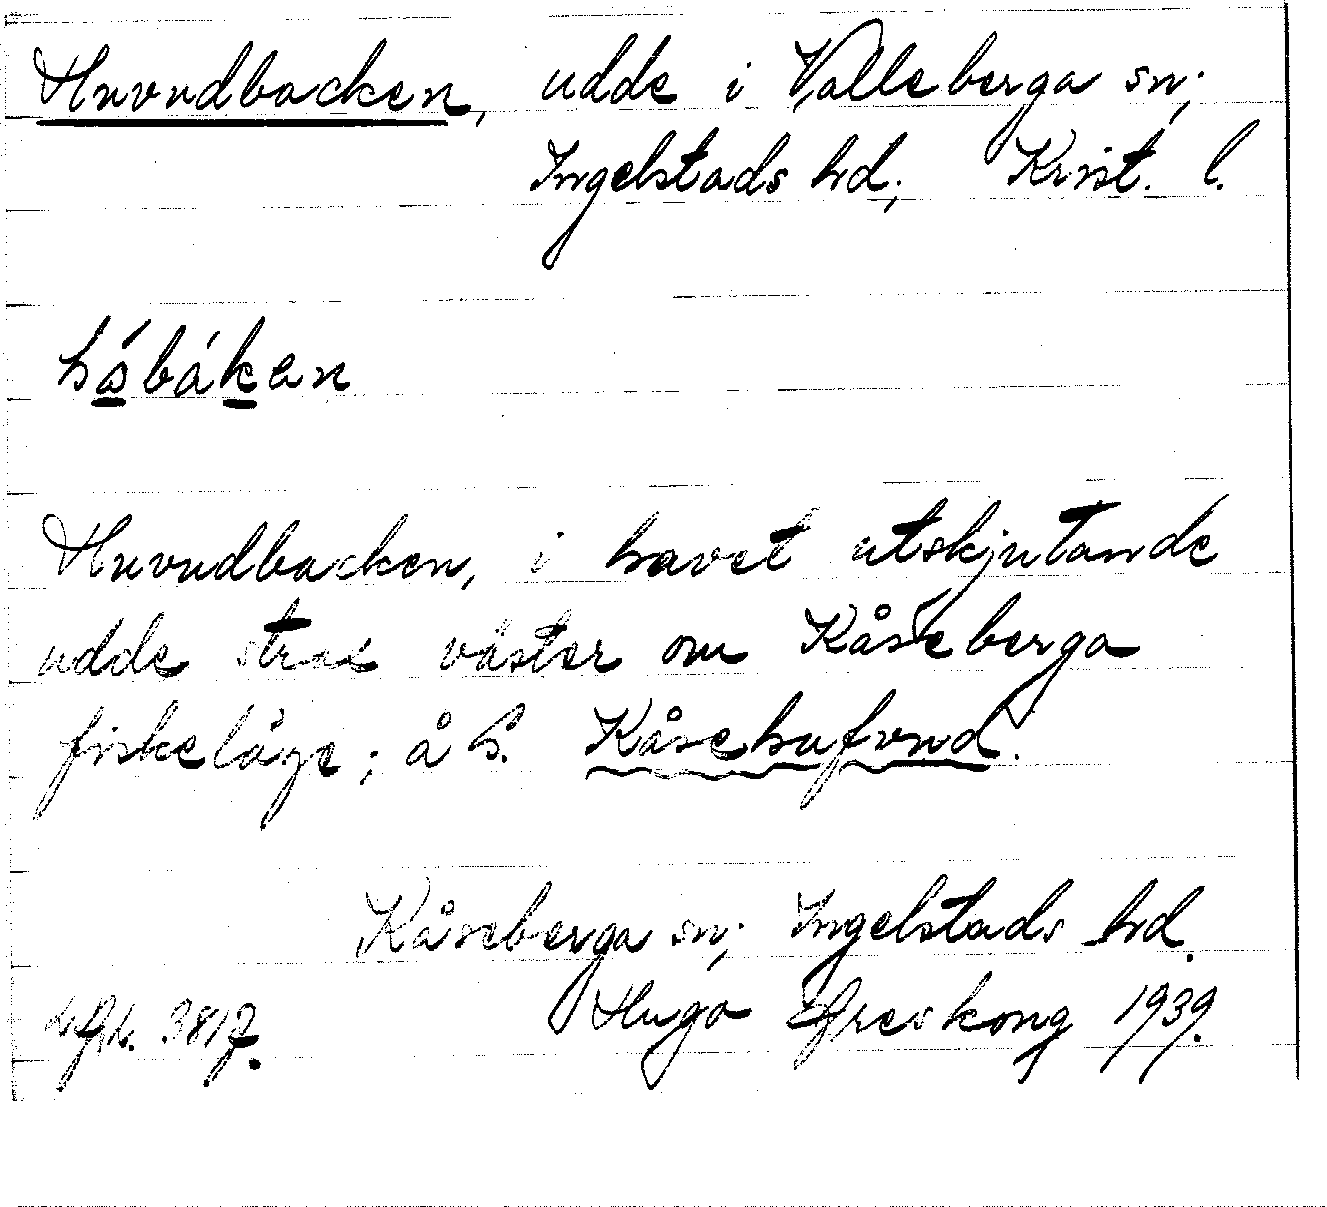 Huvudbacken, udde i Valleberga sn;
Ingelstads hd; Krist. l.
hábákan
Huvudbacken, i havet utskjutande
udde strax väster om Kåseberga
fiskeläge; å k. Kåsehufvud.
Kåseberga sn; Ingelstads hd.
3817. Hugo Areskoug 1939.